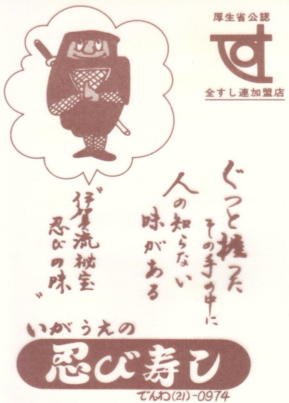 厚生省公認
す
全すし連加盟店
ぐっと握った
その手の中に
人の知らない
味がある
"伊賀流秘宝
忍びの味"
いがうえの
忍び寿し
でんわ(21)-0974